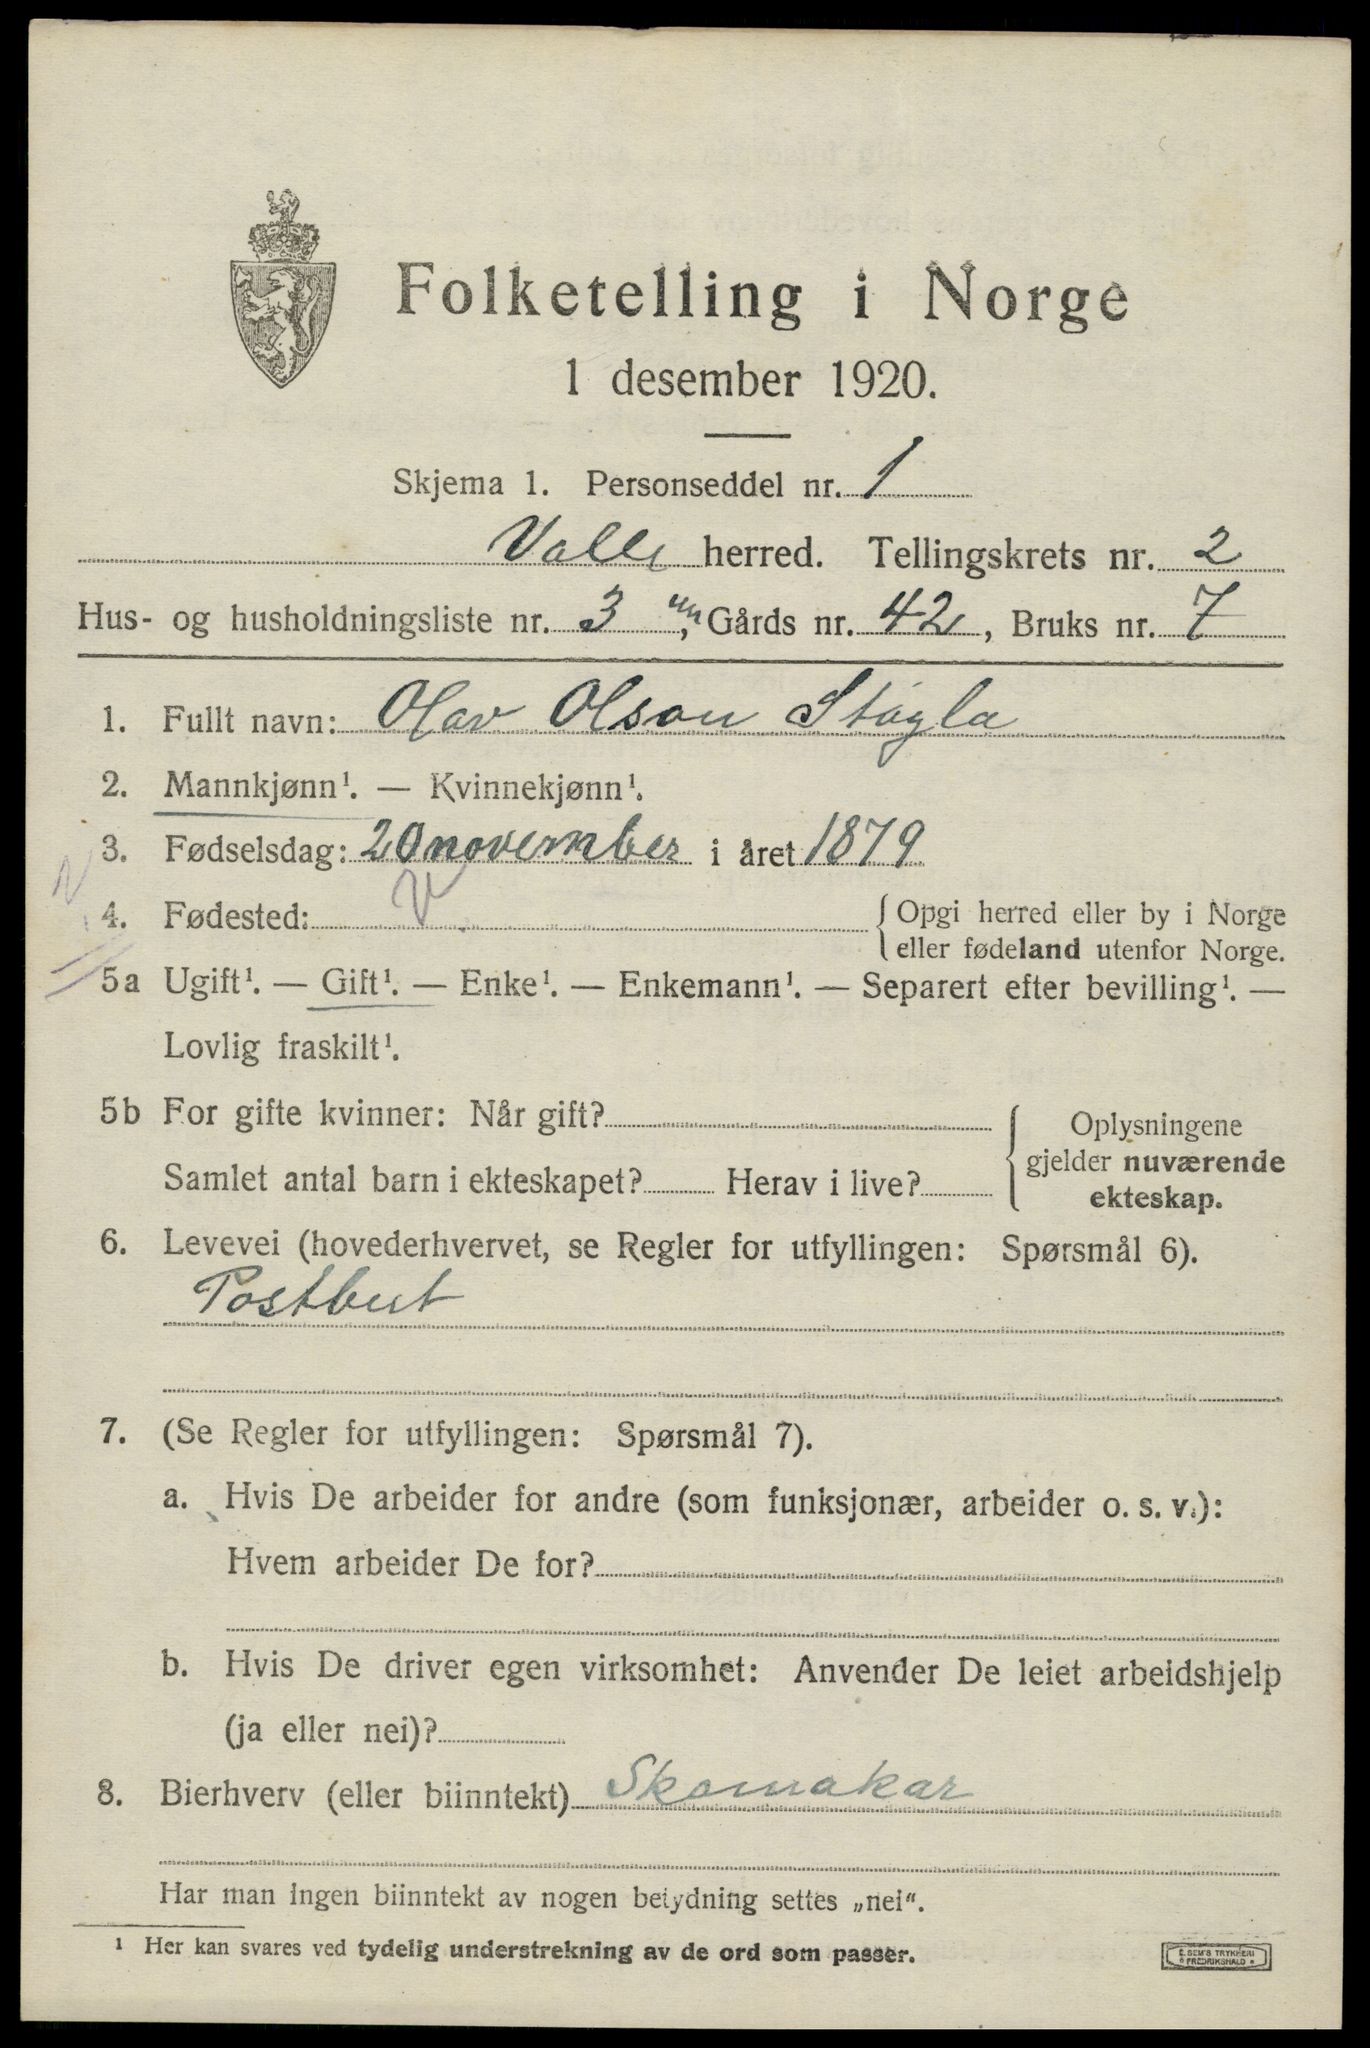 Folketelling i Norge
1 desember 1920.
Skjema 1. Personseddel nr. 1
Valle herred. Tellingskrets nr. 2
Hus- og husholdningsliste nr. 3, Gårds nr. 42, Bruks nr. 7
1. Fullt navn: Olav Olson Stagla
2. Mannkjønn¹. — Kvinnekjønn¹.
3. Fødselsdag: 20 november i året 1879
4. Fødested: V {Opgi herred eller by i Norge
eller fødeland utenfor Norge.
5a Ugift¹. — Gift¹. — Enke¹. — Enkemann¹. — Separert efter bevilling¹. —
Lovlig fraskilt¹.
5b For gifte kvinner: Når gift? {Oplysningene
gjelder nuværende
Samlet antal barn i ekteskapet? Herav i live?
ekteskap.
6. Levevei (hovederhvervet, se Regler for utfyllingen: Spørsmål 6).
Postbut
7. (Se Regler for utfyllingen: Spørsmål 7).
a. Hvis De arbeider for andre (som funksjonær, arbeider o. s. v.):
Hvem arbeider De for?
b. Hvis De driver egen virksomhet: Anvender De leiet arbeidshjelp
(ja eller nei)?
8. Bierhverv (eller biinntekt) Skomakar
Har man ingen biinntekt av nogen betydning settes „nei“.
¹ Her kan svares ved tydelig understrekning av de ord som passer.
E. SEM'S TRYKKERI
FREDRIKSHALD